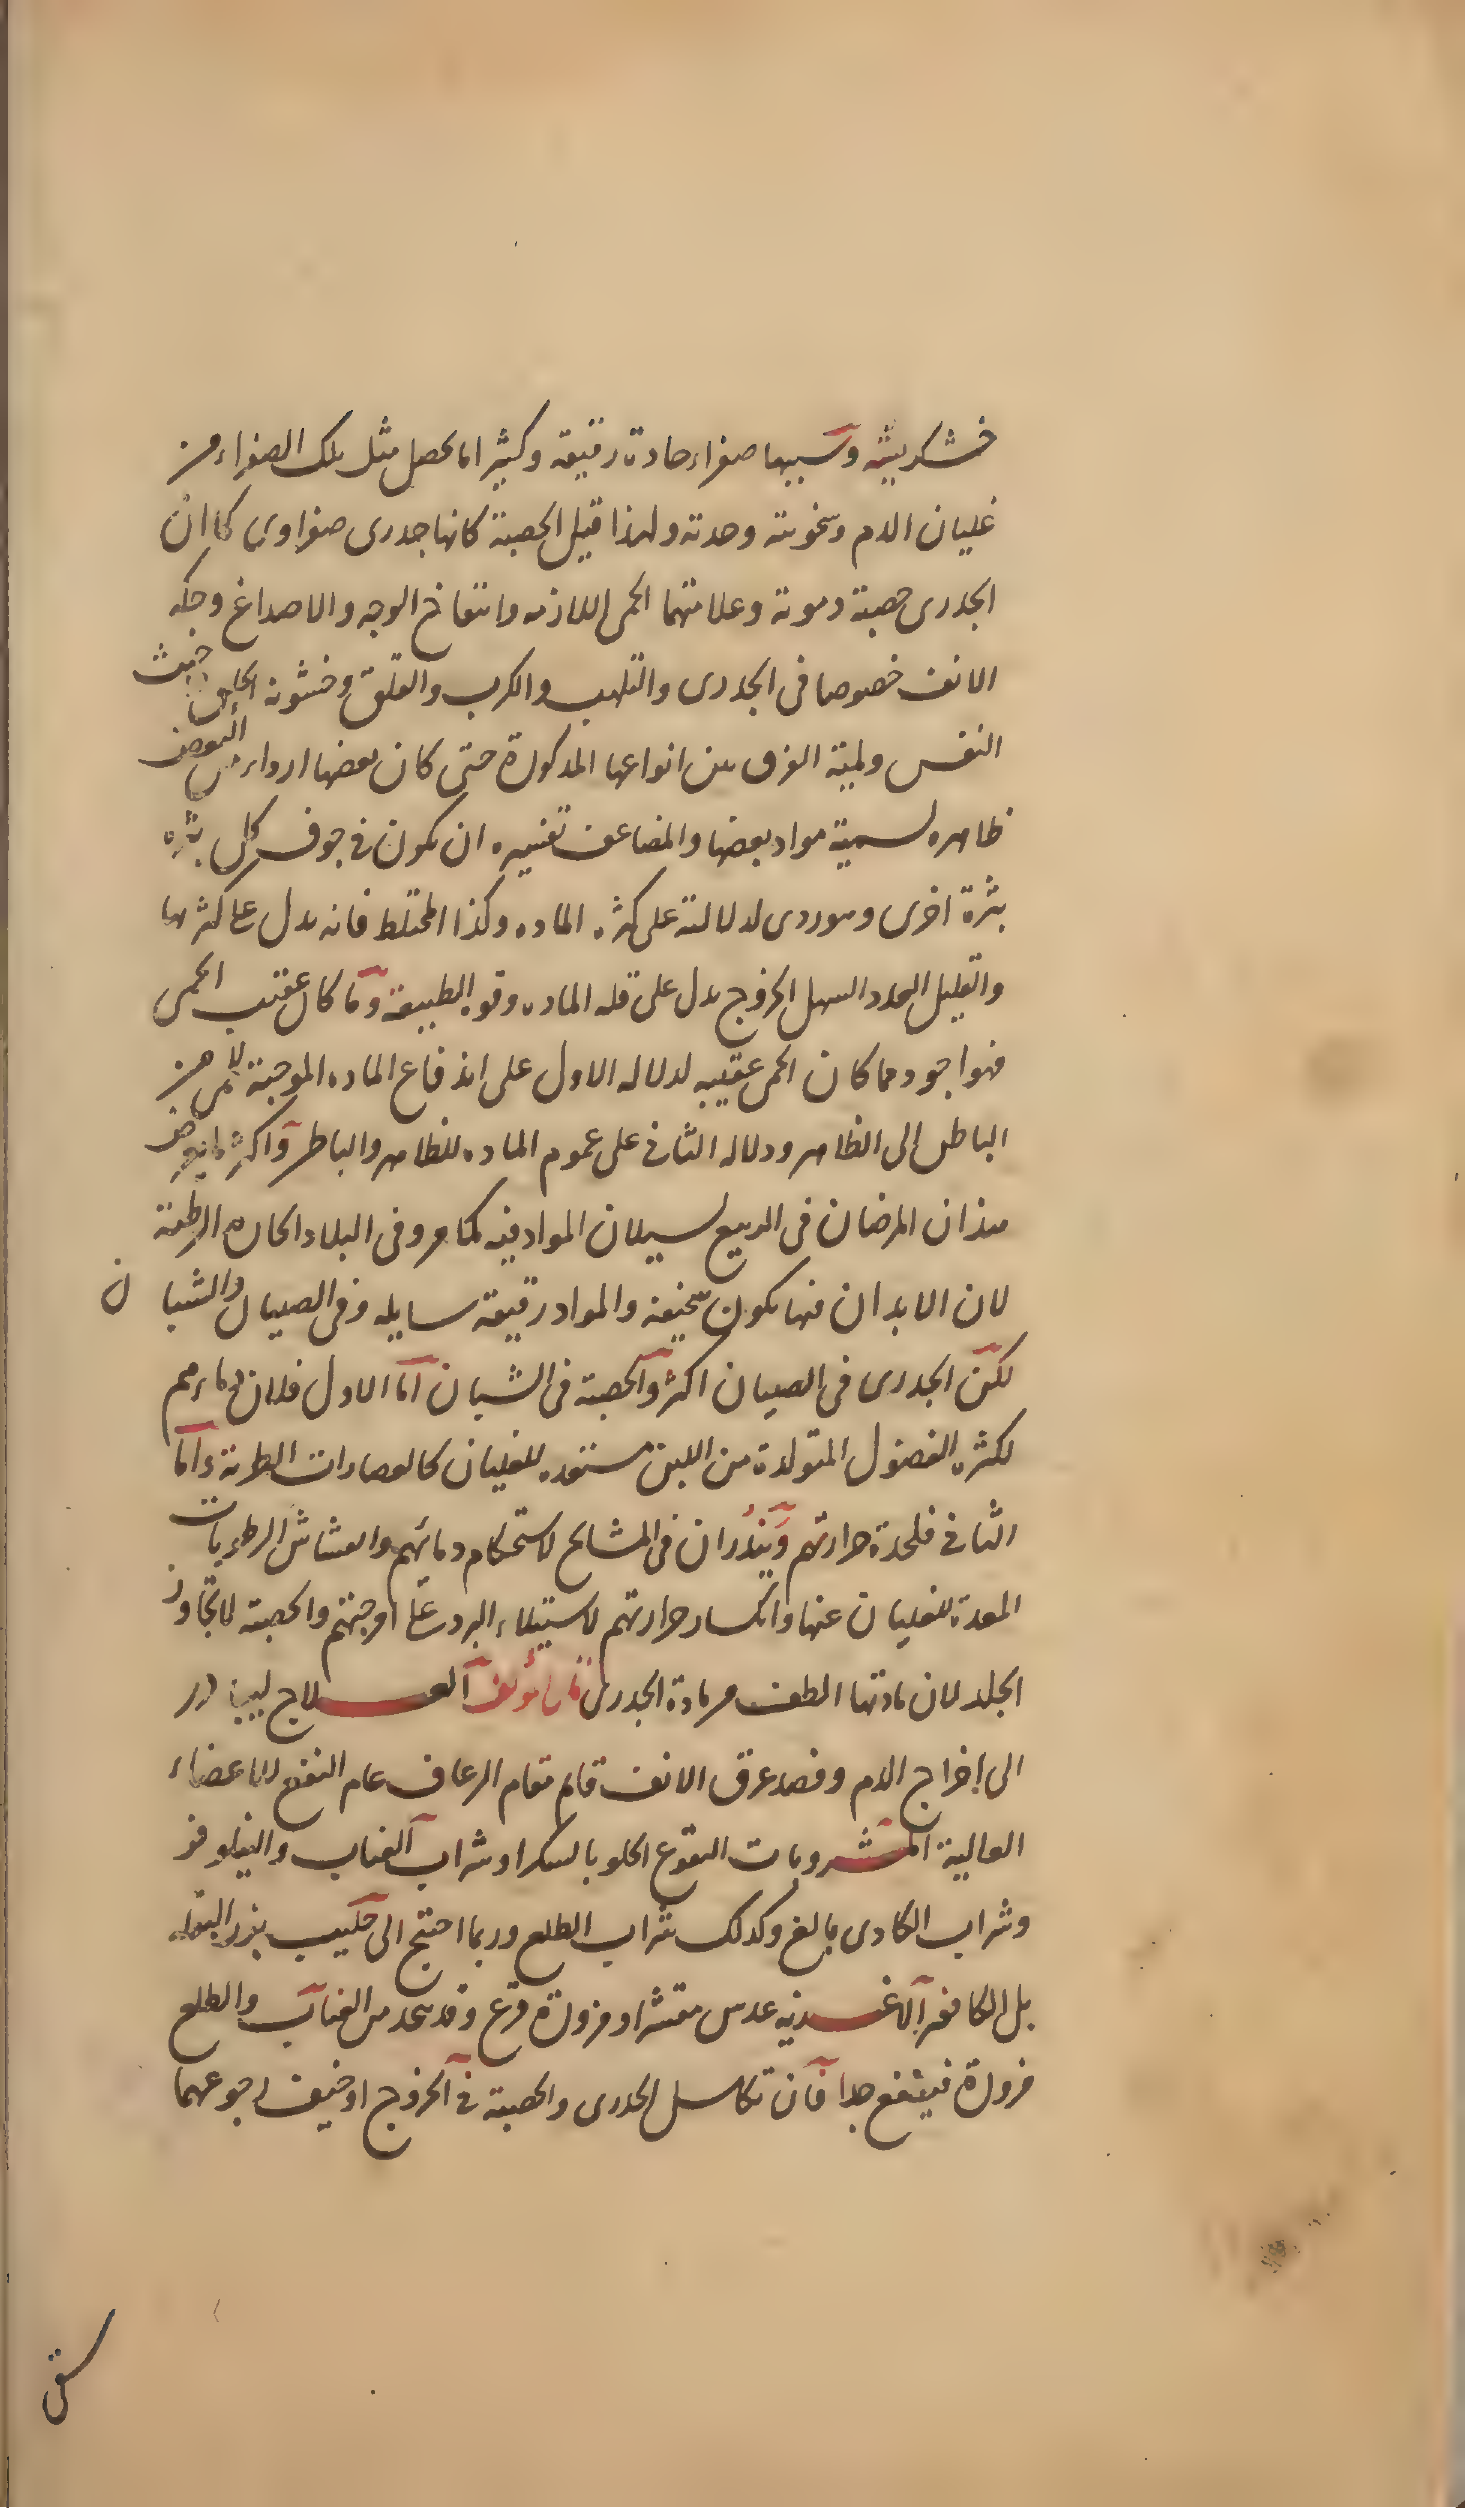 خشكريشه وسببها صفراء حادة رقيقة وكثيرا ما يحصل مثل تلك الصفراء من
غليان الدم وسخونته وحدته ولهذا قيل الحصبة كانها جدرى صفراوى كما ان
الجدرى حصبة دموية وعلامتهما الحمى اللازمه وانتفاخ الوجه والاصداغ وحكه
الانف خصوصا فى الجدرى والتلهب والكرب والقلق وخشونه الحلق وخبث
النفس ولمية الفرق بين انواعها المذكورة حتى كان بعضها ارداء من البعض
ظاهره لسمية مواد بعضها والمضاعف تفسيره ان يكون فى جوف كل بثره
بثرة اخرى وهو ردى لدلالته على كثره الماده وكذا المختلط فانه يدل على كثرتها
والقليل العدد السهل الخروج يدل على قله الماده وقوه الطبيعة وما كان عقيب الحمى
فهو اجود مما كان الحمى عقيبه لدلاله الاول على اندفاع الماده الموجبة للحمى من
الباطن الى الظاهر ودلاله الثانى على عموم الماده للظاهر والباطن واكثر ما يعرض
هذان المرضان فى الربيع لسيلان المواد فيه كما مر وفى البلاد الحاره الرطبة
لان الابدان فيها يكون سخيفة والمواد رقيقة سايله وفى الصبيان والشبان
لكن الجدرى فى الصبيان اكثر والحصبة فى الشبان اما الاول فلان دماءهم
لكثره الفضول المتولدة من اللبن مستعده للغليان كالعصارات الطرية واما
الثانى فلحدة حرارتهم ويندران فى المشايخ لاستحكام دمائهم وانفشاش الرطوبات
المعدة للغليان عنها وانكسار حرارتهم لاستيلاء البرد على امزجتهم والحصبة لا تجاوز
الجلد لان مادتها الطف من مادة الجدرى قال المؤلف العلاج ليبادر
الى اخراج الدم وفصد عرق الانف قايم مقام الرعاف عام النفع للاعضاء
العالية المشروبات النقوع الحلو بالسكر او شراب العناب والنيلوفر
وشراب الكادى بالغ وكذلك شراب الطلع وربما احتيج الى حليب بزر البقله
بل الكافور الاغذيه عدس مقشر او مزورة قرع وقد يتخذ من العناب والطلع
مزورة فينفع جدا فان تكاسل الجدرى والحصبة فى الخروج او خيف رجوعهما